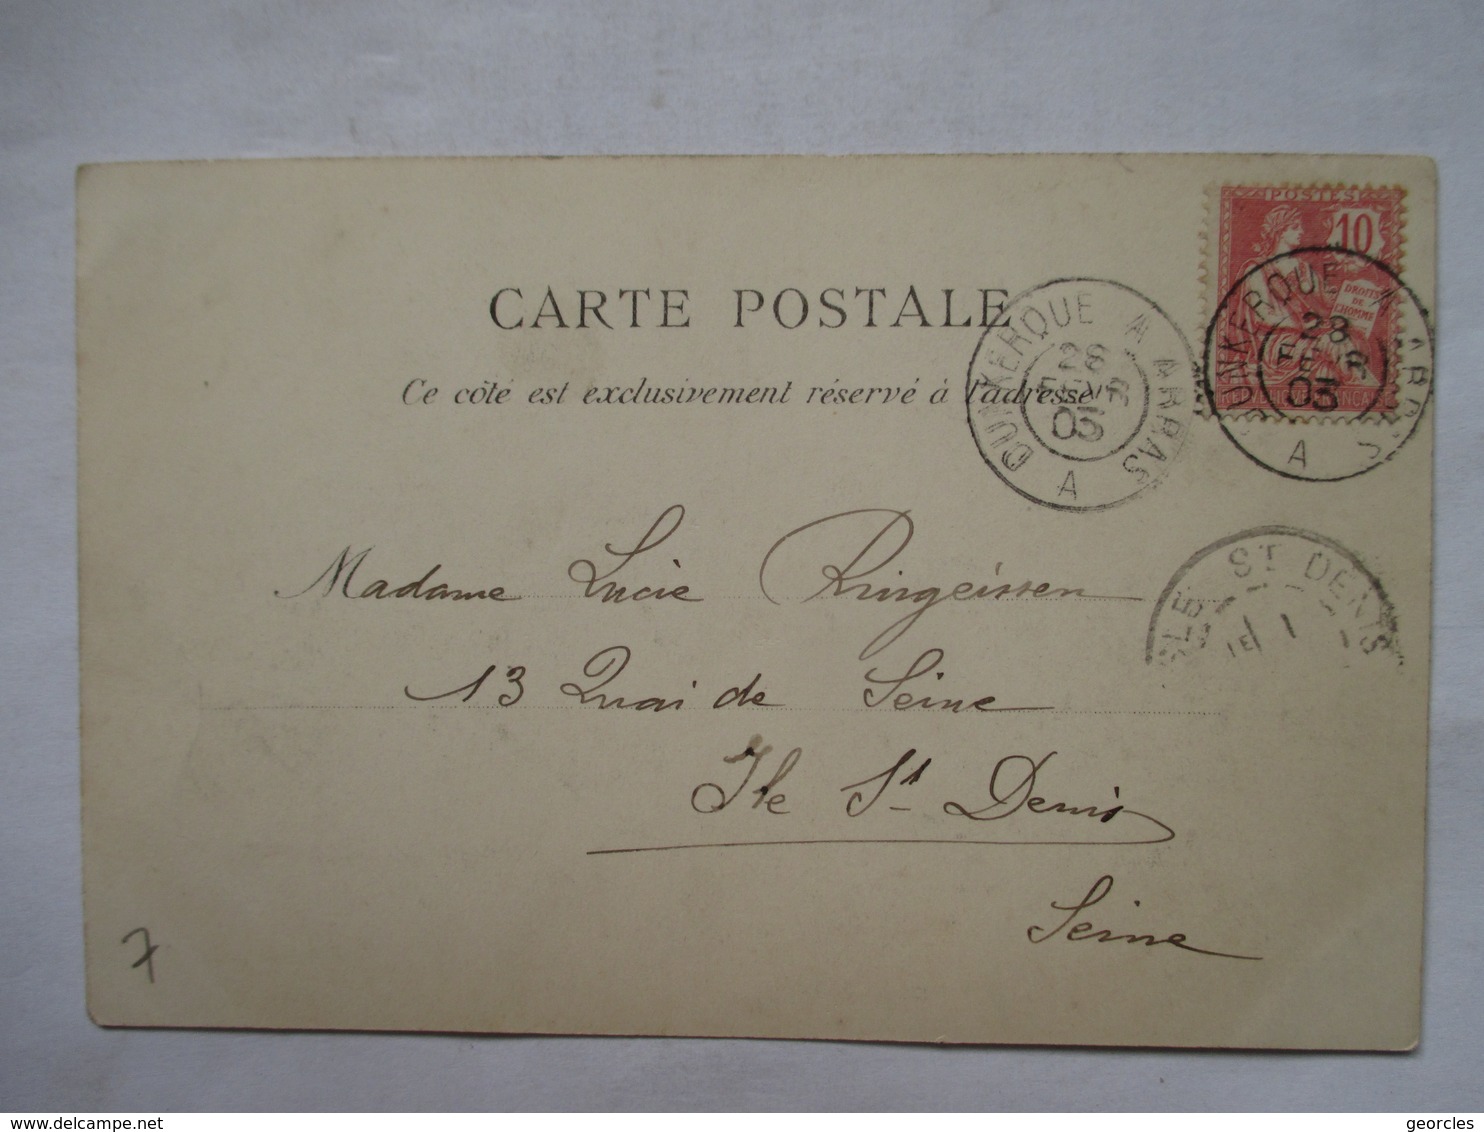 POSTES
10
DROITS
DE
L'HOMME
CARTE POSTALE
DUNKERQUE A ARRAS
28
FEVR
03
A
DUNKERQUE A ARRAS
28
03
A
Ce côté est exclusivement réservé à l'adresse
ST DENIS
Madame Lucie Ringeissen
13 Quai de Seine
Ile St Denis
Seine
7
www.delcampe.net
georcles